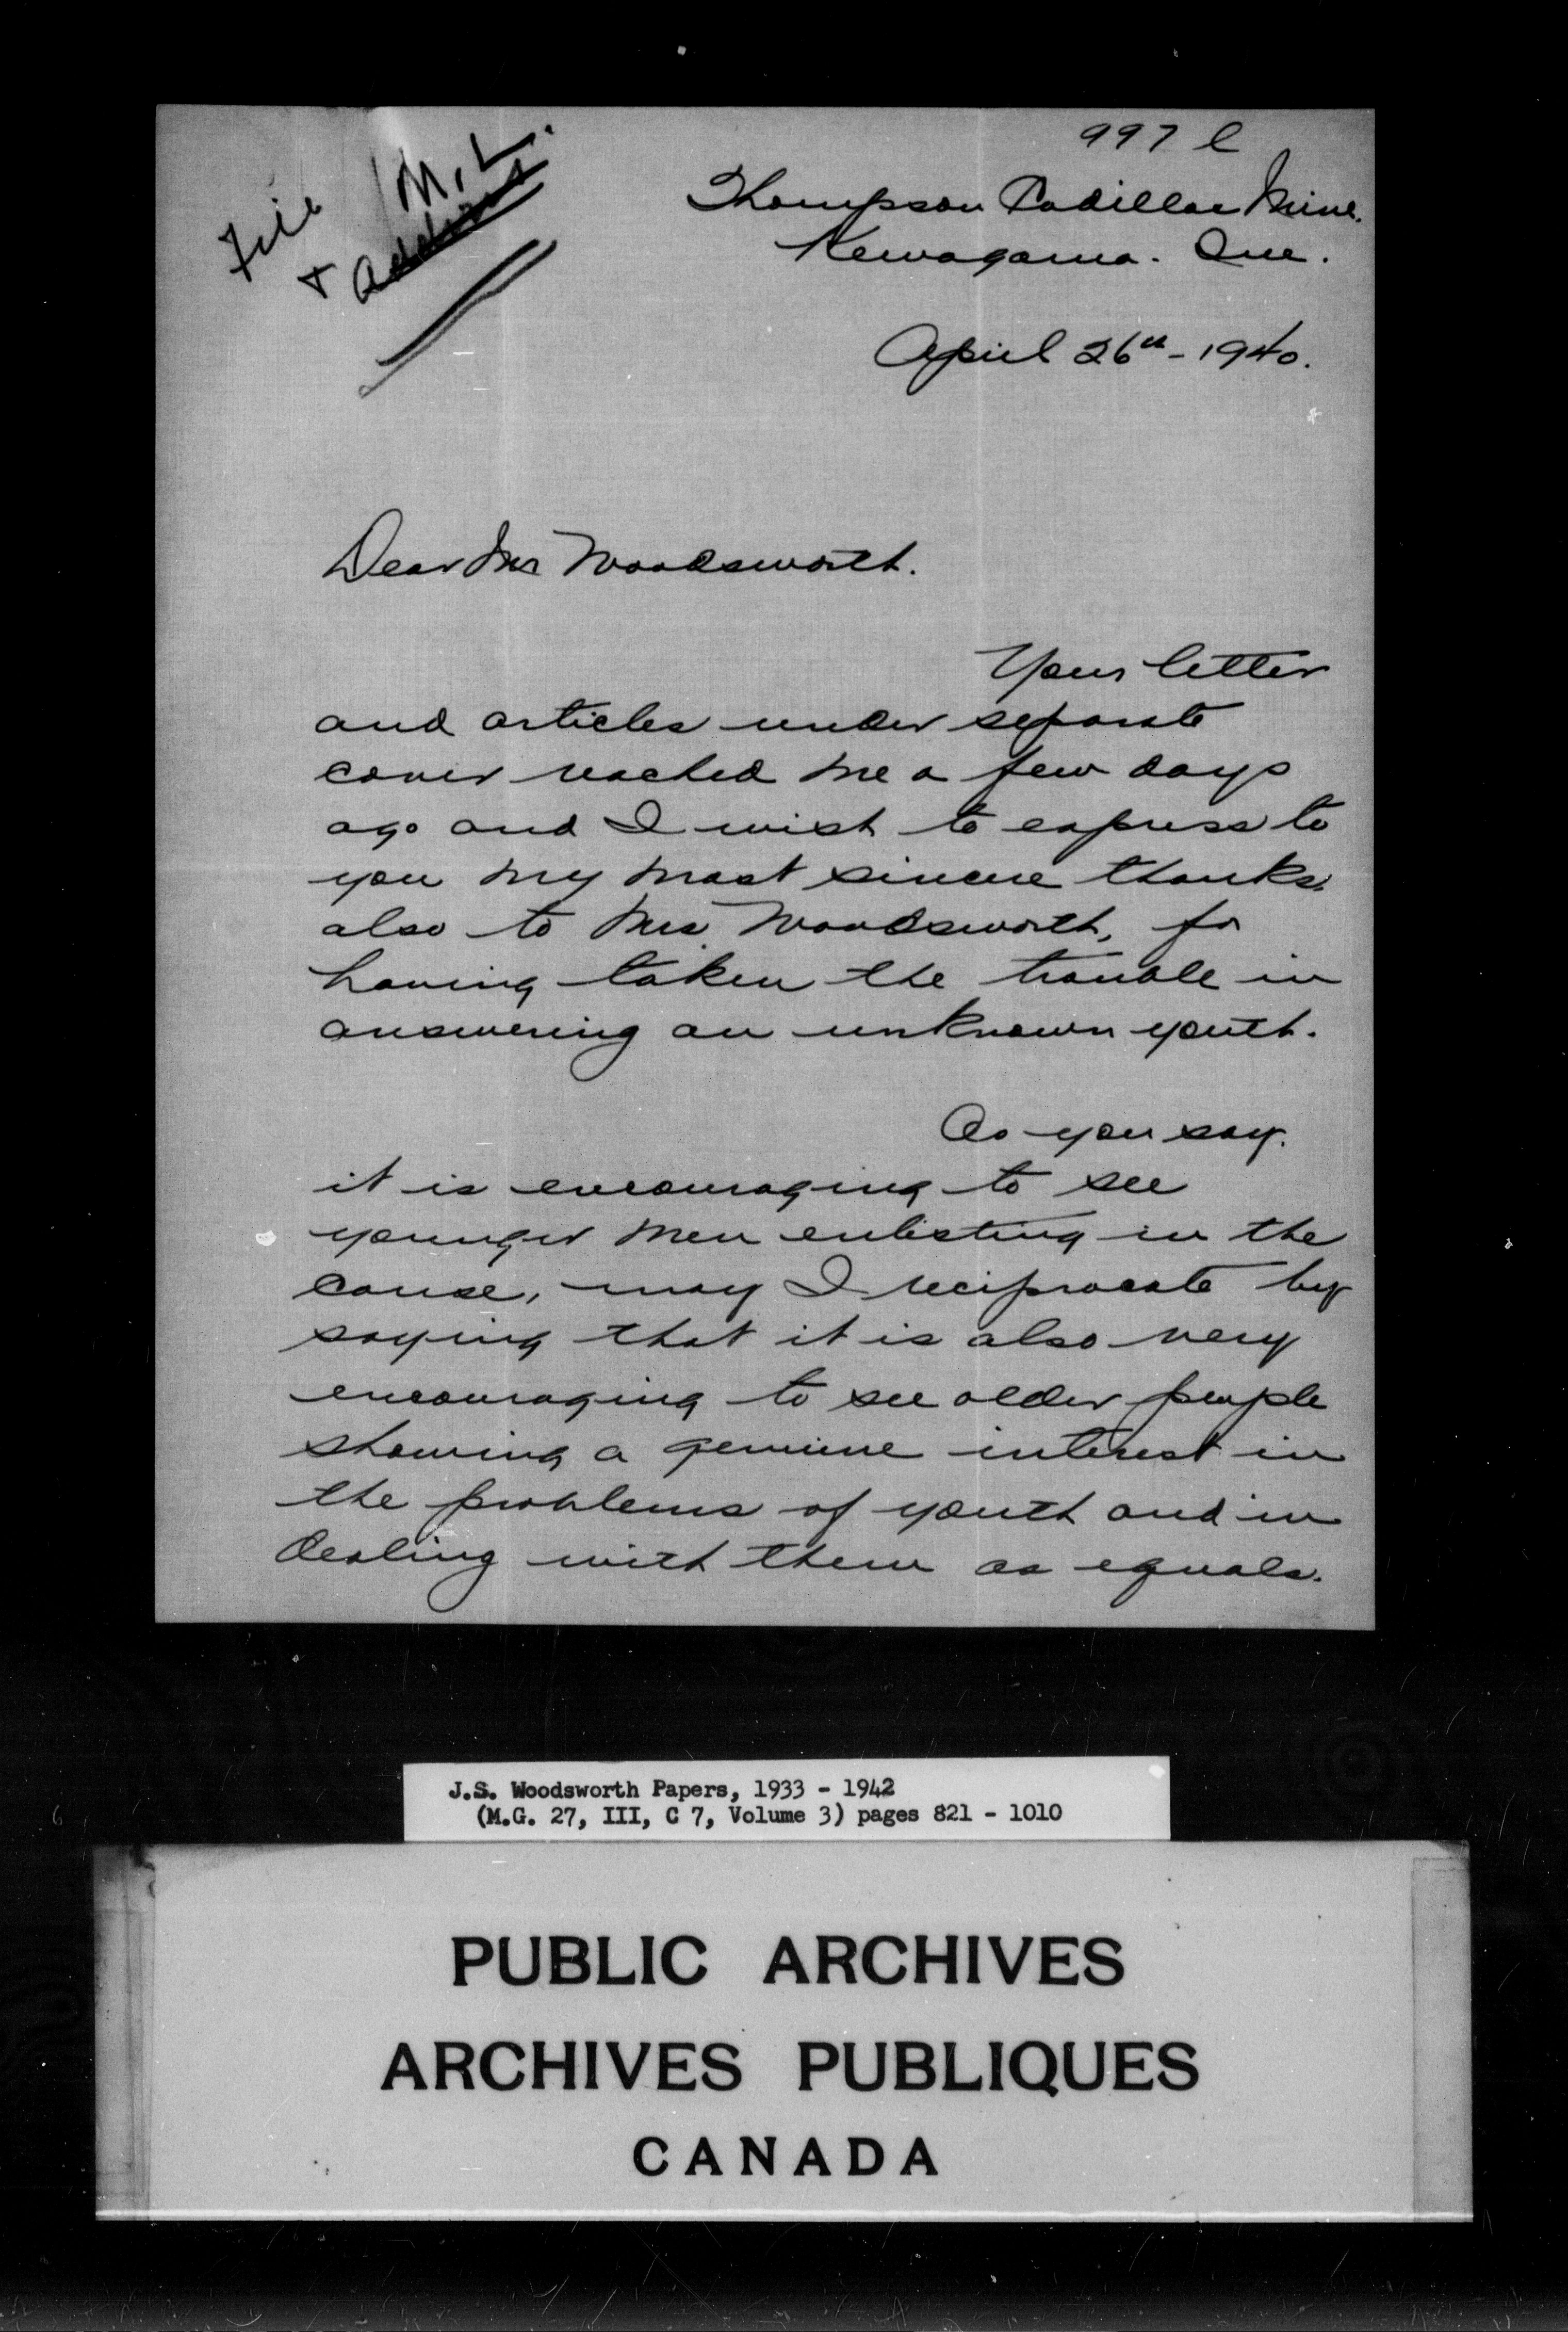 997 l
File M.L.
+ Address
Thompson Cadillac Mine.
Kewagama. Que.
April 26th - 1940.
Dear Mr Woodsworth.
Your letter
and articles under separate
cover reached me a few days
ago and I wish to express to
you my most sincere thanks,
also to Mrs. Woodsworth, for
having taken the trouble in
answering an unknown youth.
As you say.
it is encouraging to see
younger men enlisting in the
cause, may I reciprocate by
saying that it is also very
encouraging to see older people
showing a genuine interest in
the problems of youth and in
dealing with them as equals.
J.S. Woodsworth Papers, 1933 - 1942
(M.G. 27, III, C 7, Volume 3) pages 821 - 1010
PUBLIC ARCHIVES
ARCHIVES PUBLIQUES
CANADA